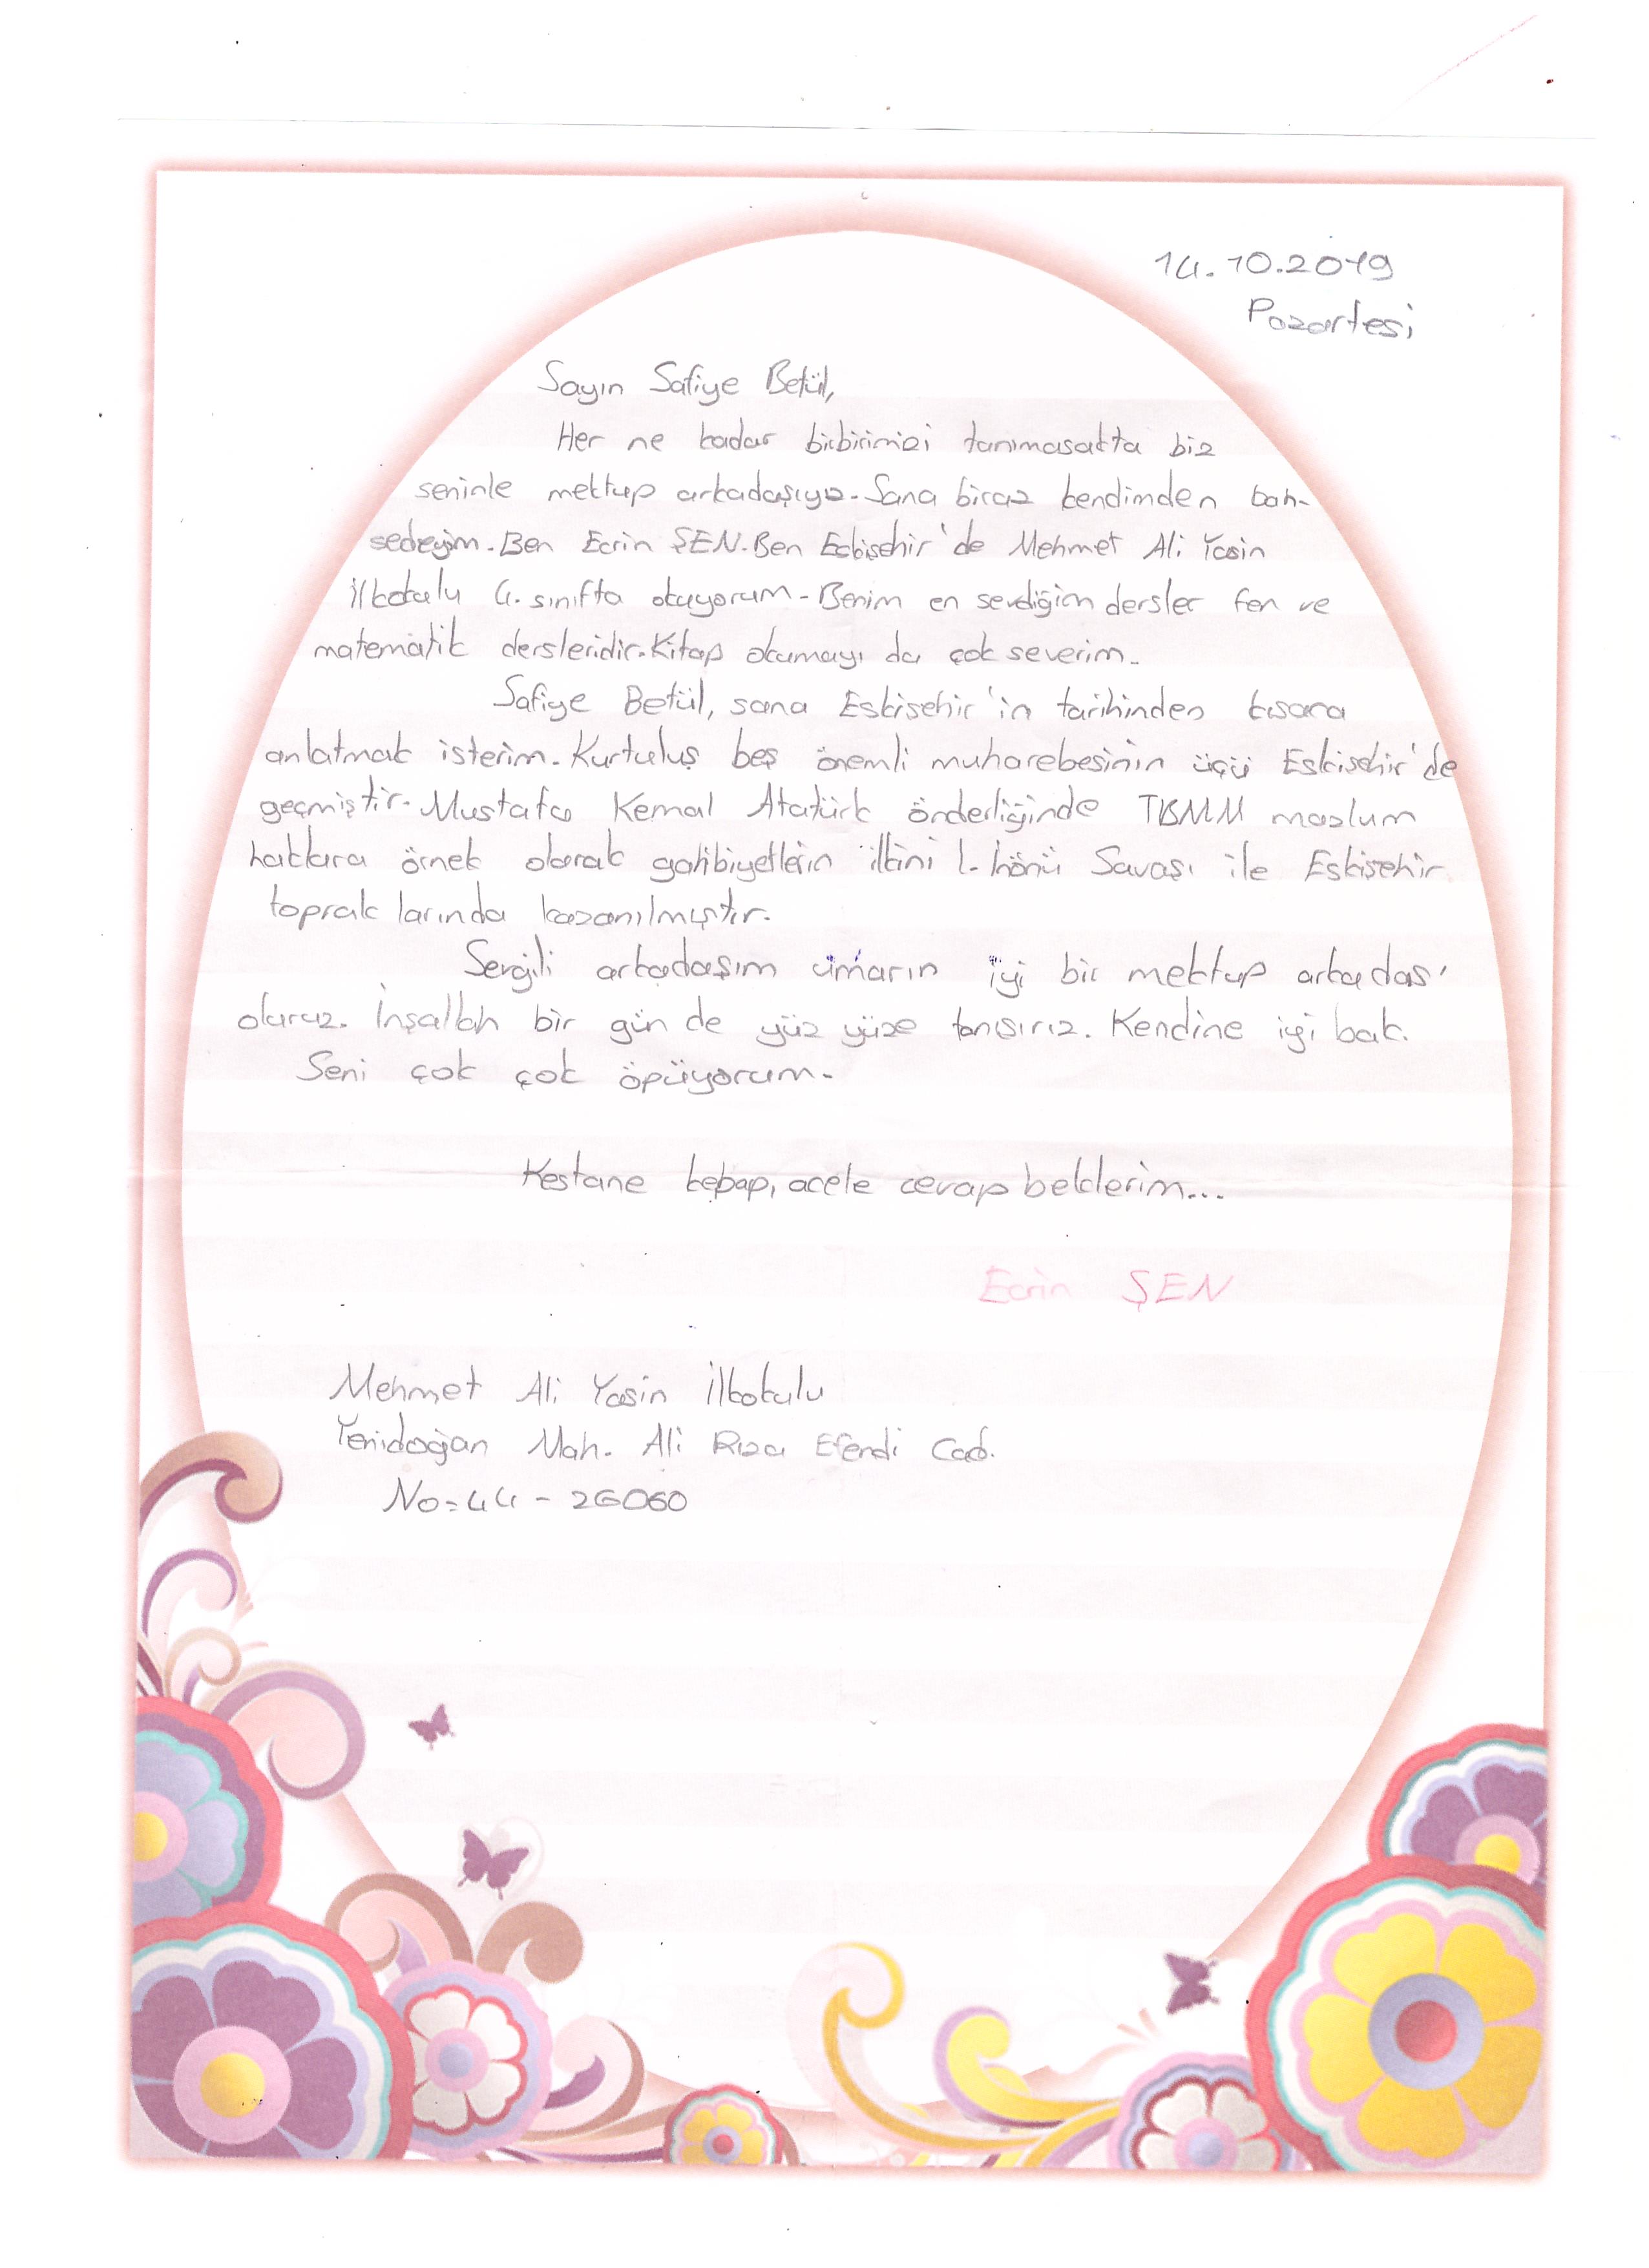 14.10.2019
Pazartesi
Sayın Safiye Betül,
Her ne kadar birbirimizi tanımasakta biz
seninle mektup arkadaşıyız. Sana biraz kendimden bah-
sedeyim. Ben Ecrin ŞEN. Ben Eskişehir'de Mehmet Ali Yasin
İlkokulu 4. sınıfta okuyorum. Benim en sevdiğim dersler fen ve
matematik dersleridir. Kitap okumayı da çok severim.
Safiye Betül, sana Eskişehir'in tarihinden kısaca
anlatmak isterim. Kurtuluş beş önemli muharebesinin üçü Eskişehir'de
geçmiştir. Mustafa Kemal Atatürk önderliğinde TBMM mazlum
halklara örnek olarak galibiyetlerin ilkini I. İnönü Savaşı ile Eskişehir
topraklarında kazanılmıştır.
Sevgili arkadaşım umarın iyi bir mektup arkadaşı
oluruz. İnşallah bir gün de yüz yüze tanışırız. Kendine iyi bak.
Seni çok çok öpüyorum.
Kestane kebap, acele cevap beklerim...
Ecrin ŞEN
Mehmet Ali Yasin İlkokulu
Yenidoğan Mah. Ali Rıza Efendi Cad.
No=44 - 26060